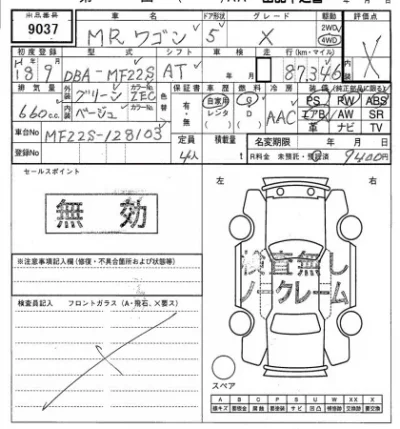 出品番号 車名 ドア形状 グレード 駆動 評価点
9037 MRワゴン 5 X 2WD 4WD X
初度登録 型式 シフト 車検 走行(km・マイル) 内装
H18 9 DBA-MF22S AT 年 月 87,346
排気量 外装 グリーン カラーNo ZEC 色替 保証書 車歴 燃料 冷房 装備(純正部品に限る)
660cc 内装 ベージュ カラーNo 有・無 自家用 レンタ G D AAC PS RW ABS
エアB AW SR
革 ナビ TV
車台No MF22S-128103 定員 積載量 名変期限 年 月 日
登録No 4人 t R料金 未預託・預託済 9400円
セールスポイント 左 右
無効
検査無し
ノークレーム
※注意事項記入欄(修復・不具合箇所および状態等)
検査員記入 フロントガラス(A・飛石、X要ス)
スペア
A B C P S U W XX X
線キズ 要板金 腐触 要塗装 サビ 凹凸 補修跡 交換跡 要交換